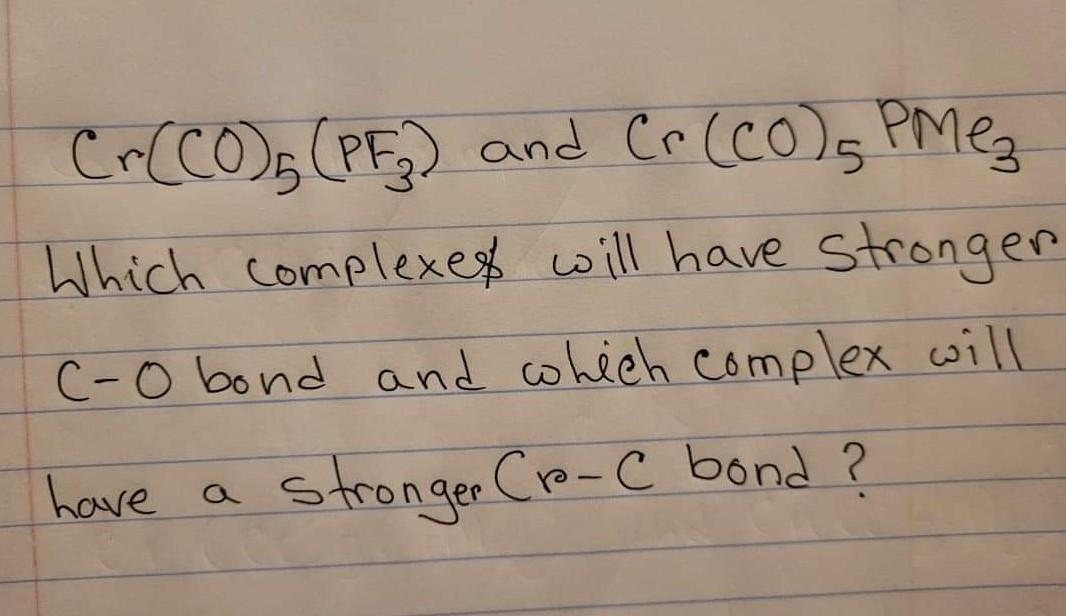 Cr(CO)₅(PF₃) and Cr(CO)₅ PMe₃
Which complexes will have stronger
C-O bond and which complex will
have a stronger Cr-C bond?